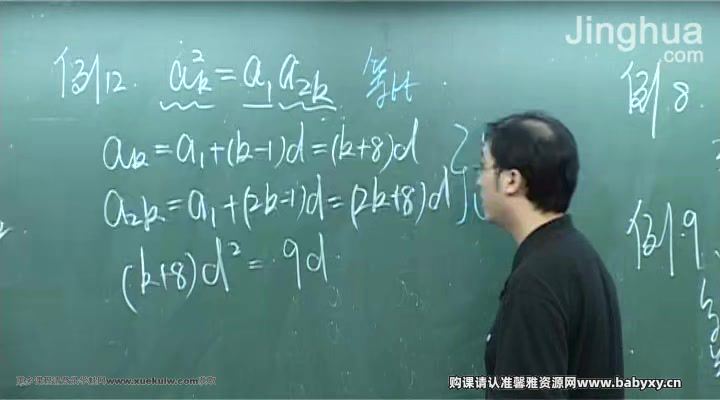 Jinghua
.com
例12. aₖ² = a₁a₂ₖ 等比
例.8
aₖ=a₁+(k-1)d=(k+8)d
a₂ₖ=a₁+(2k-1)d=(2k+8)d
(k+8)d²=9d
例.9
购课请认准馨雅资源网www.babyxy.cn